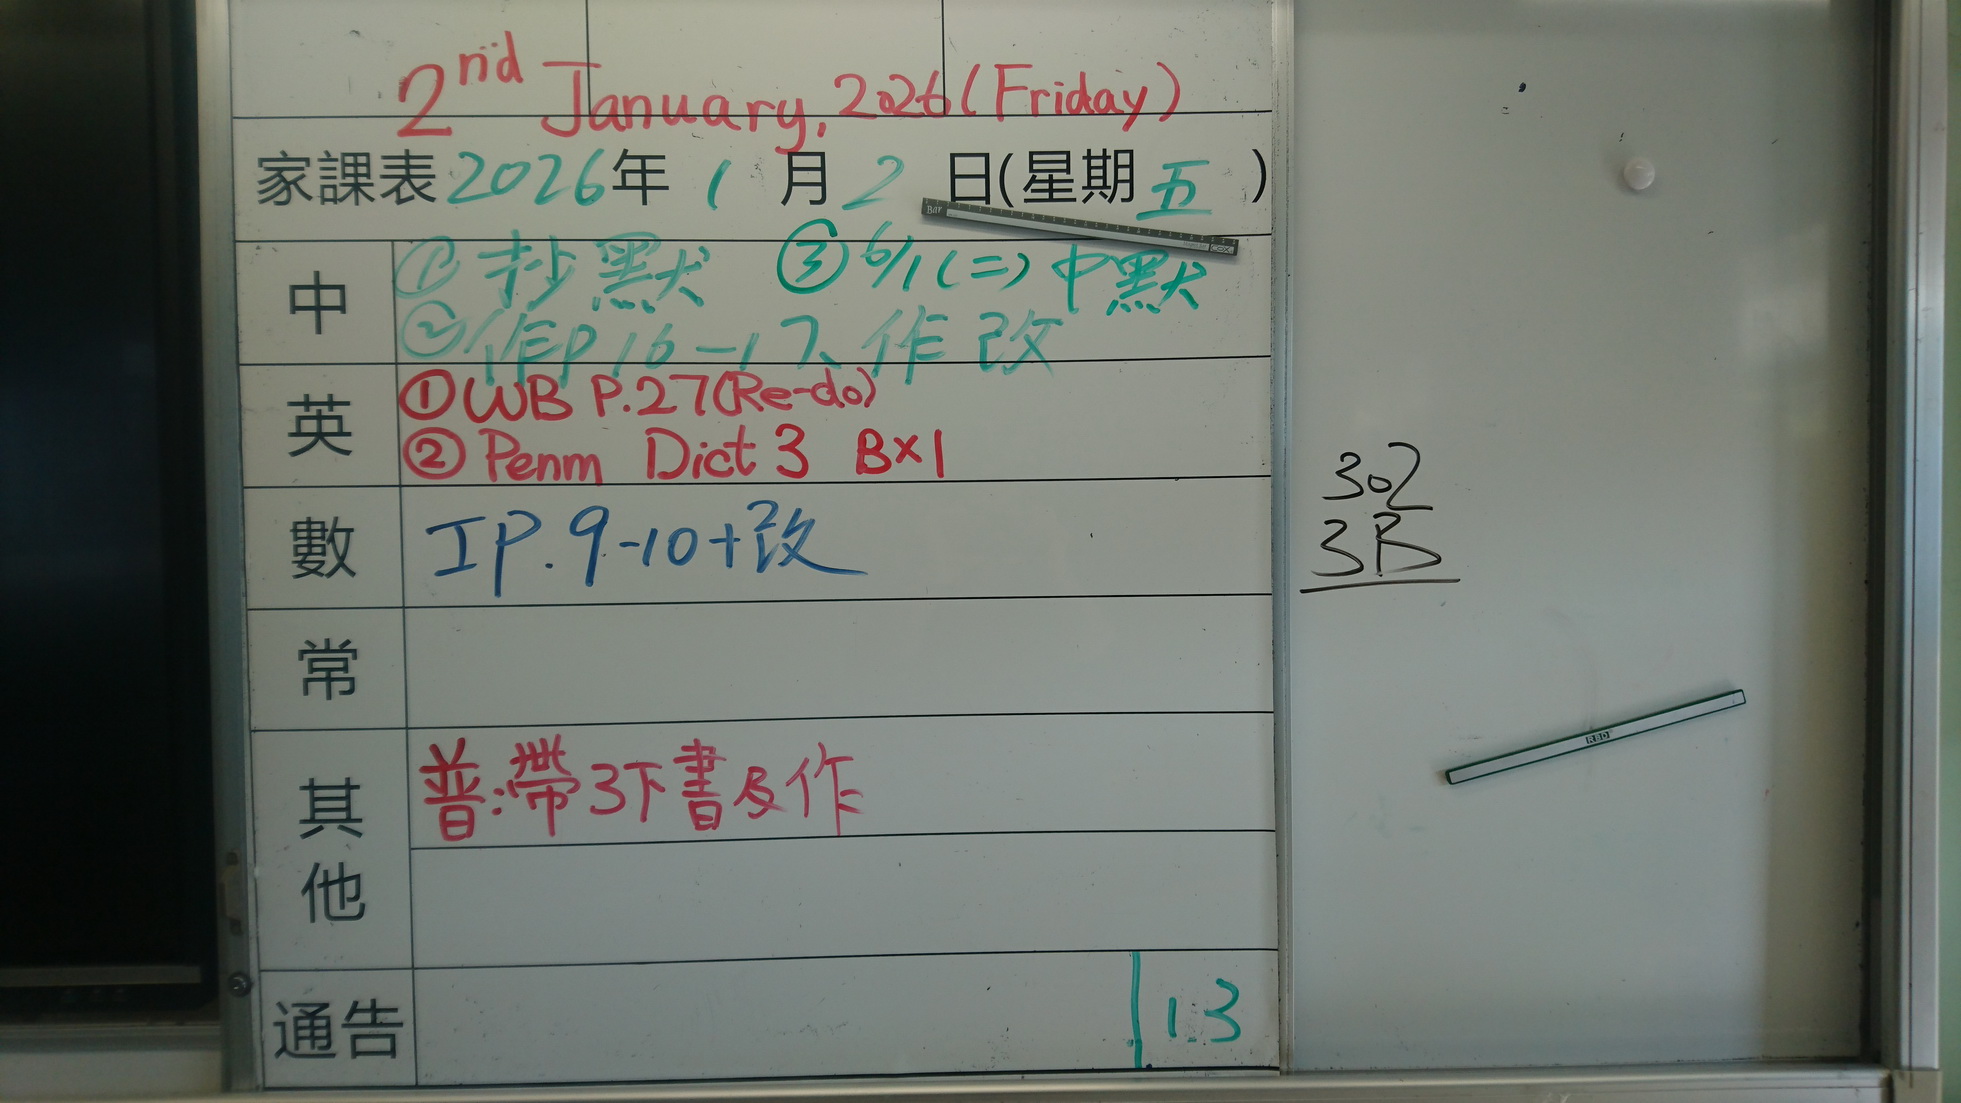 2nd January, 2026 (Friday)
家課表 2026年 1 月 2 日(星期 五 )
中
① 抄默 ③ 6/1 (二) 中默
② 作P.16-17、作改
英
① WB P.27 (Re-do)
② Penm Dict 3 B×1
數
工P.9-10+改
常
其他
普:帶3下書及作
通告
13
302
3B
RBD